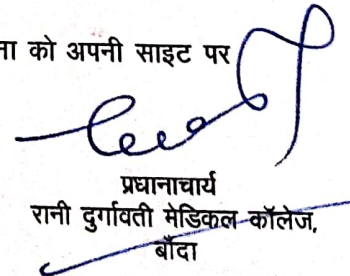 ना को अपनी साइट पर
प्रधानाचार्य
रानी दुर्गावती मेडिकल कॉलेज,
बाँदा